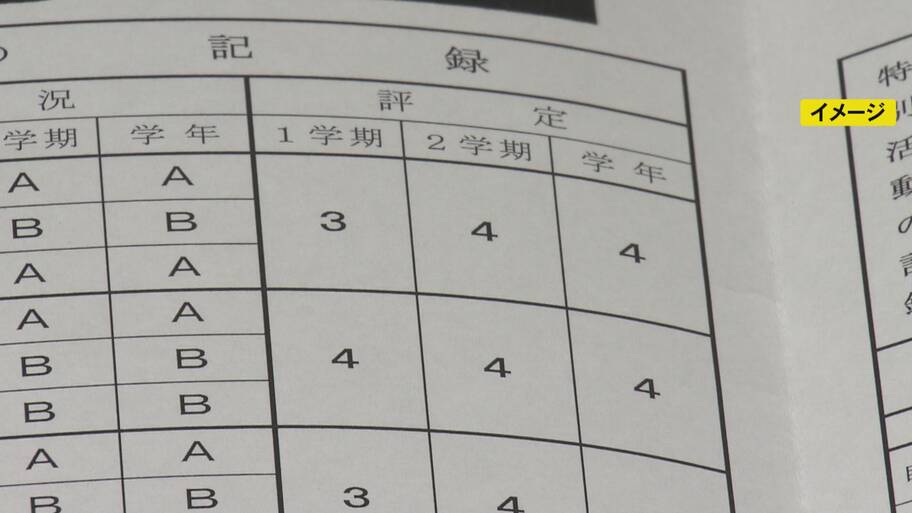 の記録
況 評定
学期 学年 1学期 2学期 学年
A A 3 4 4
B B
A A
A A 4 4 4
B B
B B
A A 3 4
B B
イメージ
特別活動の記録